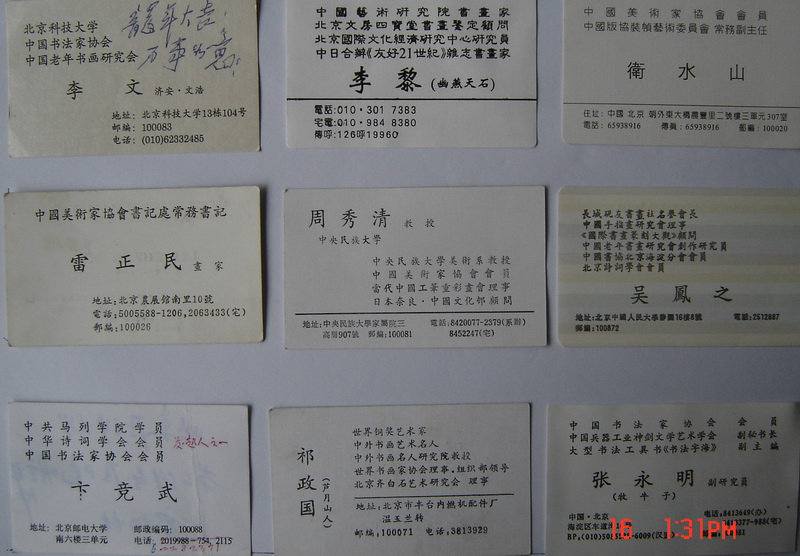 北京科技大学
中国书法家协会
中国老年书画研究会
龍年大吉
万事如意
李 文 济安·文浩
地址：北京科技大学13栋104号
邮编：100083
电话：(010)62332485
中國藝術研究院書畫家
北京文房四寶堂書畫鑒定顧問
北京國際文化經濟研究中心研究員
中日合辦《友好21世紀》雜志書畫家
李黎 (幽燕天石)
電話:010·301 7383
宅電:010·984 8380
傳呼:126呼19960
中國美術家協會會員
中國版協裝幀藝術委員會 常務副主任
衛水山
住址：中國 北京 朝外東大橋農豐里二號樓三單元307室
電話：65938916 傳真：65938916 郵編：100020
中國美術家協會書記處常務書記
雷正民 畫家
地址:北京農展館南里10號
電話:5005588-1206,2063433(宅)
郵編:100026
周秀清 教授
中央民族大學
中央民族大學美術系教授
中國美術家協會會員
當代中國工筆重彩畫會理事
日本奈良·中國文化部顧問
地址:中央民族大學家屬院三高層907號 郵編:100081
電話:8420077-2379(系辦)
8452247(宅)
長城硯友書畫社名譽會長
中國手指畫研究會理事
《國際書畫篆刻大觀》顧問
中國老年書畫研究會創作研究員
中國書協北京海淀分會會員
北京詩詞學會會員
吴鳳之
地址:北京中國人民大學静園16樓8號 電話:2512887
郵編:100872
中共马列学院学员
中华诗词学会会员 发起人之一
中国书法家协会会员
卞竞武
地址：北京邮电大学
南六楼三单元
邮政编码：100088
电话：2019988—754, 2115
世界铜奖艺术家
中外书画艺术名人
中外书画名人研究院教授
世界书画家协会理事.组织部领导
北京齐白石艺术研究会 理事
祁政国
(芦月山人)
地址:北京市丰台内燃机配件厂
温玉兰转
邮编,100071 电话,3813929
中国书法家协会 会员
中国兵器工业神剑文学艺术学会 副秘书长
大型书法工具书《书法字海》 副主编
张永明 副研究员
(牧牛子)
中国·北京
海淀区车道
电话,8413649(办)
BP,(010)
16 1:31PM